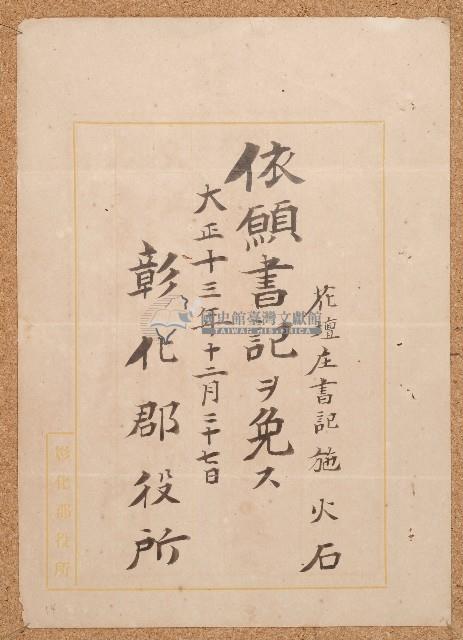 花壇庄書記施火石
依願書記ヲ免ス
大正十三年十二月二十七日
彰化郡役所
彰化郡役所
國史館臺灣文獻館
TAIWAN HISTORICA